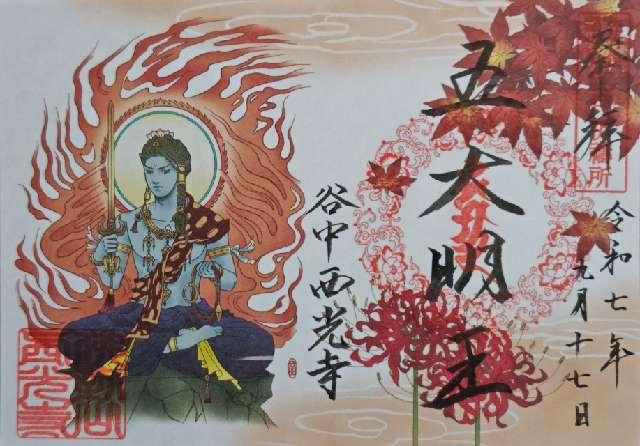 奉拝
令和七年
九月十七日
五大明王
谷中西光寺